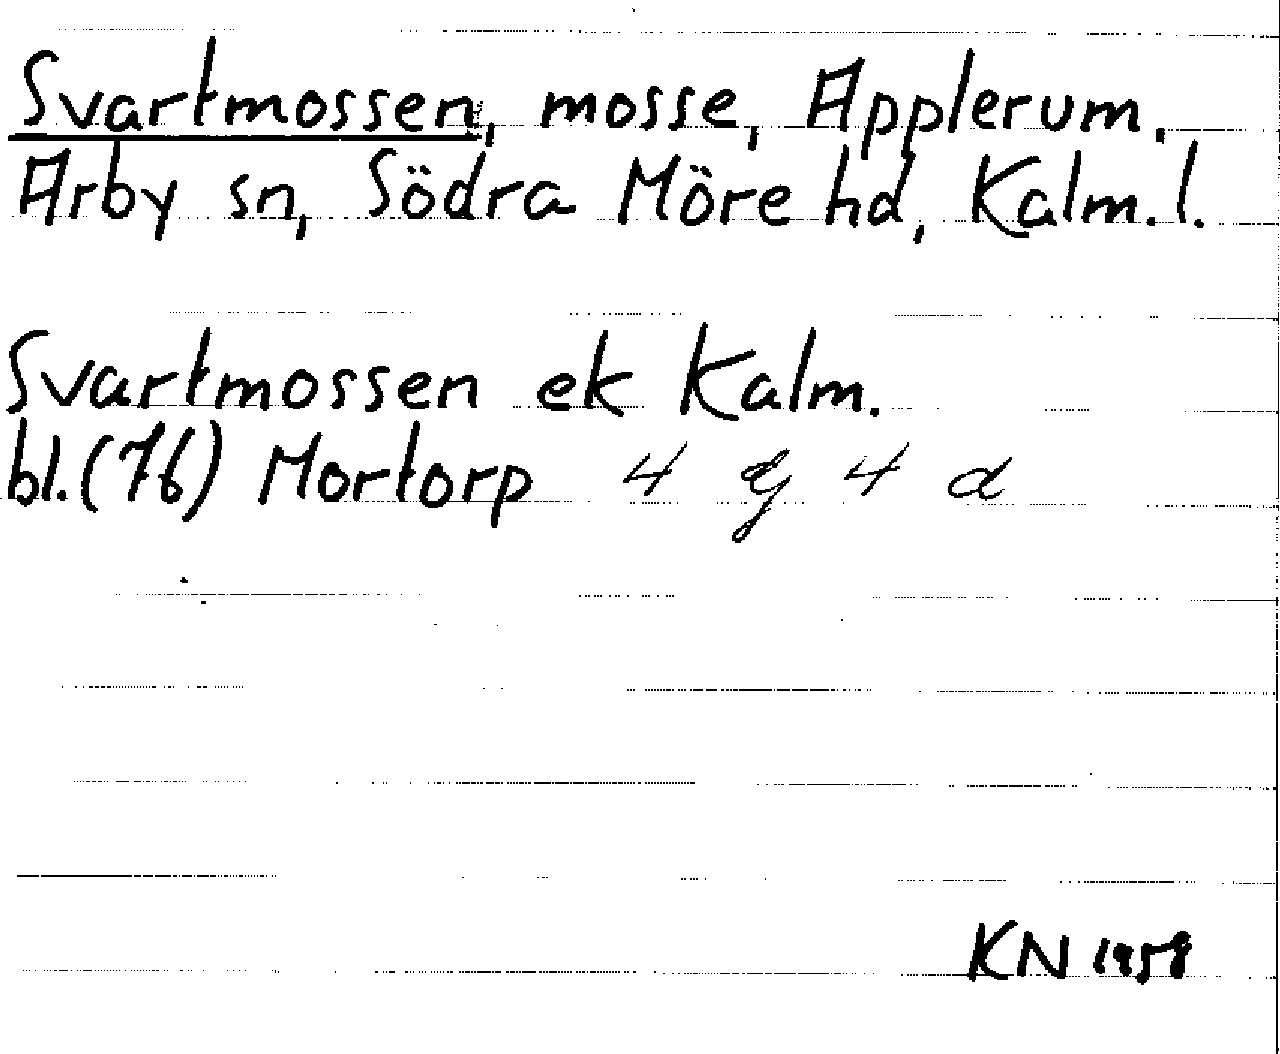 Svartmossen, mosse, Applerum.
Arby sn, Södra Möre hd, Kalm. l.
Svartmossen ek Kalm.
bl. (76) Mortorp 4 g 4 d
KN 1958